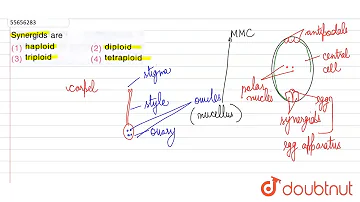 55656283
Synergids are
(1) haploid (2) diploid
(3) triploid (4) tetraploid
carpel
stigma
style
ovary
ovules
(nucellus)
MMC
antipodals
central
cell
polar
nucleus
egg
synergids
egg apparatus
doubtnut